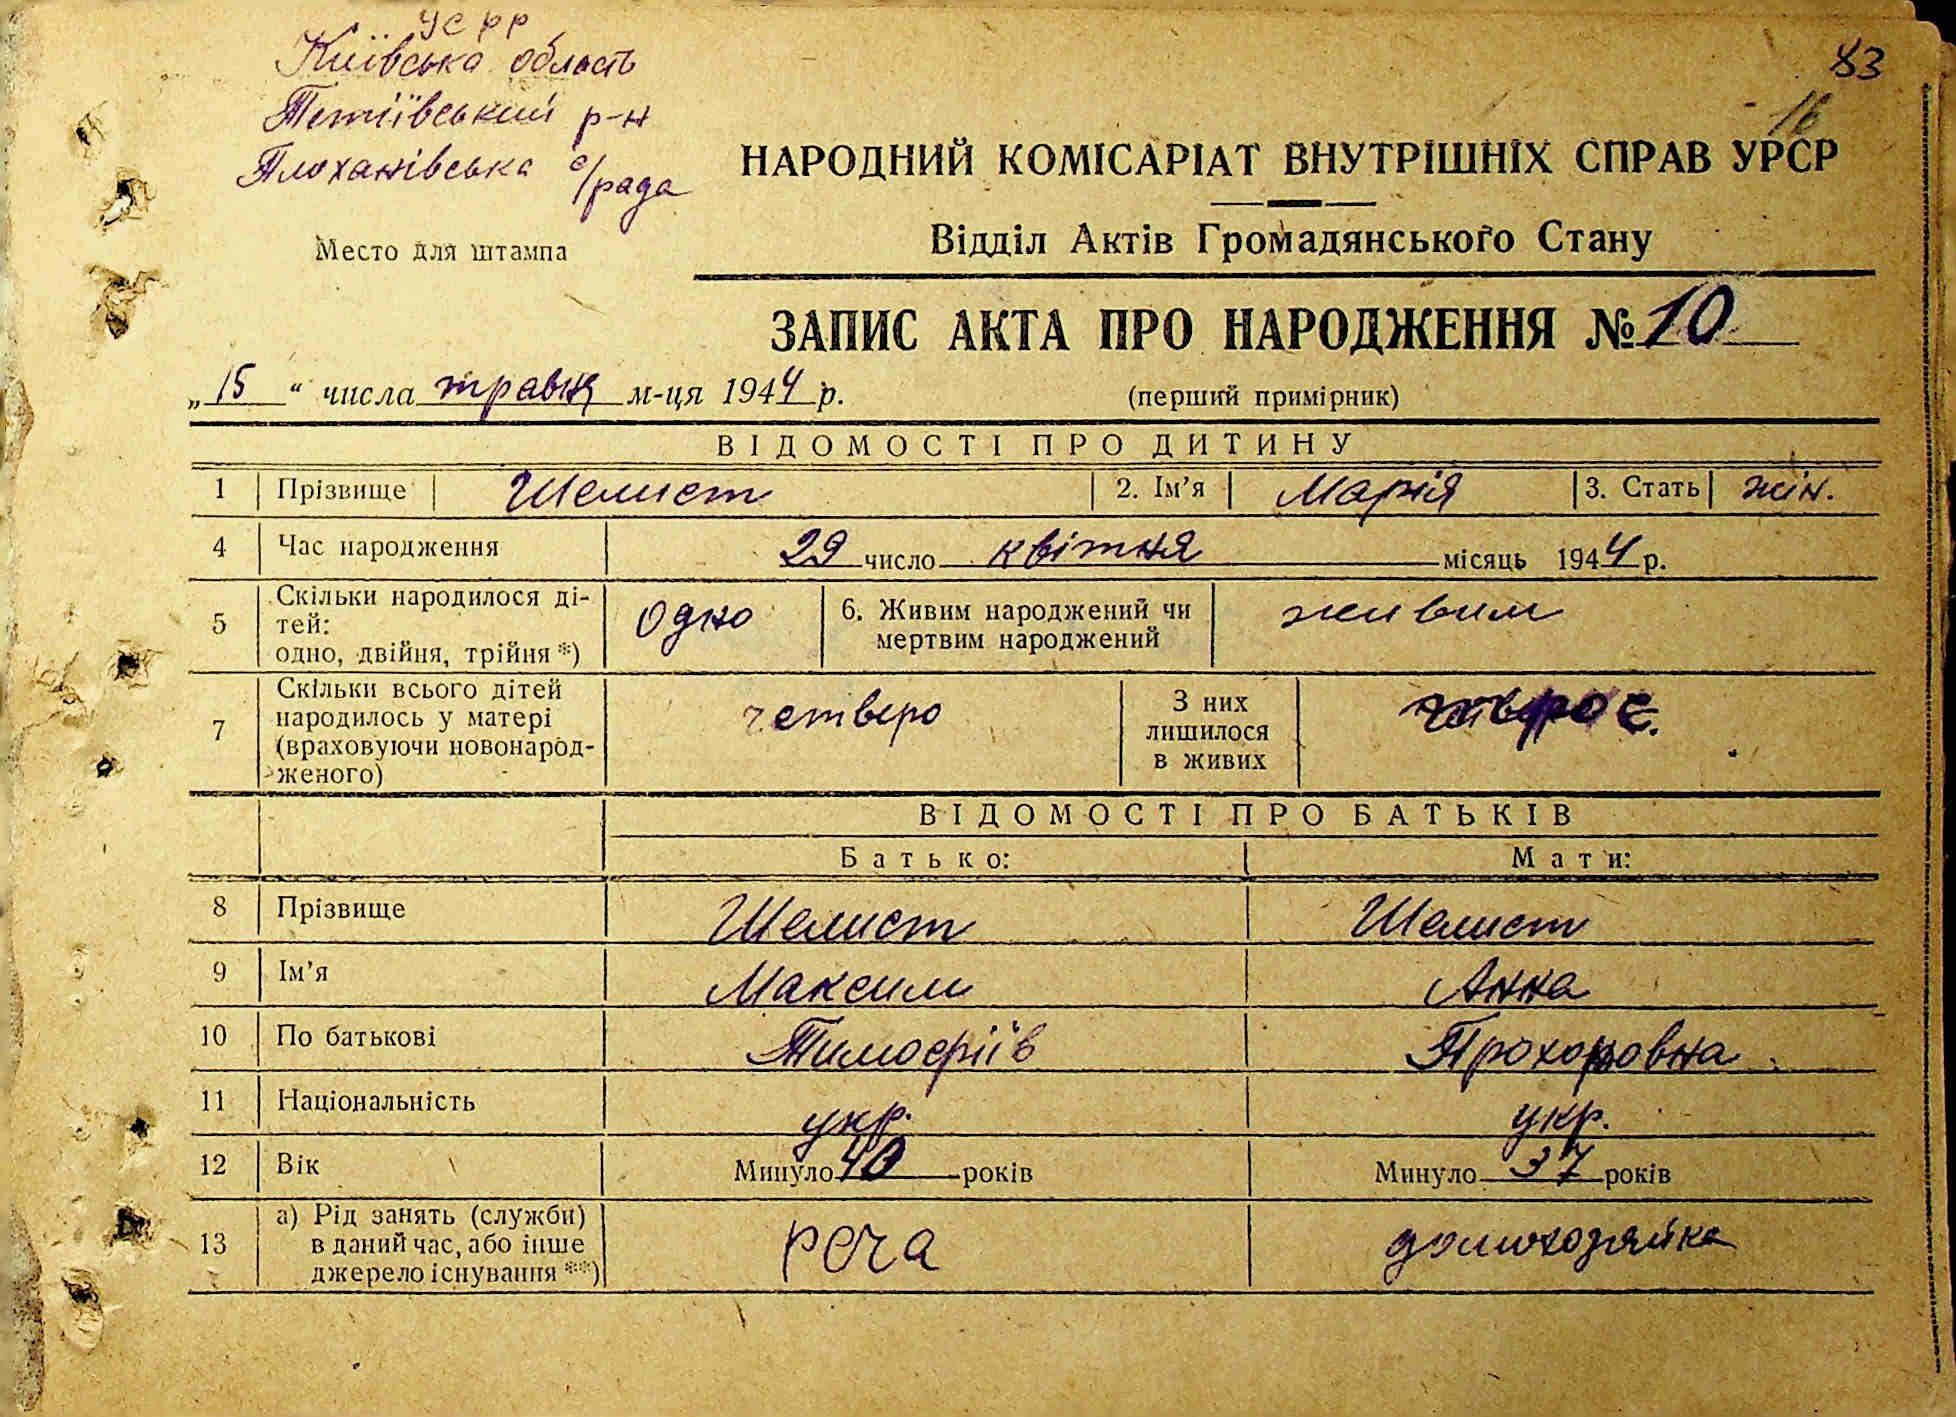 УСРР
Київська область
Тетіївський р-н
Плоханівська с/рада
83
16
НАРОДНИЙ КОМІСАРІАТ ВНУТРІШНІХ СПРАВ УРСР
Место для штампа
Відділ Актів Громадянського Стану
ЗАПИС АКТА ПРО НАРОДЖЕННЯ № 10
„15" числа травня м-ця 1944 р.
(перший примірник)
ВІДОМОСТІ ПРО ДИТИНУ
1 Прізвище Шелист 2. Ім'я Марія 3. Стать жін.
4 Час народження 29 число квітня місяць 1944 р.
5 Скільки народилося ді-
тей:
одно, двійня, трійня *) одно 6. Живим народжений чи
мертвим народжений живим
7 Скільки всього дітей
народилось у матері
(враховуючи новонарод-
женого) четверо З них
лишилося
в живих
ВІДОМОСТІ ПРО БАТЬКІВ
Батько: Мати:
8 Прізвище Шелист Шелист
9 Ім'я Максим Анна
10 По батькові Тимофіїв Прохоровна
11 Національність укр. укр.
12 Вік Минуло 40 років Минуло 37 років
13 а) Рід занять (служби)
в даний час, або інше
джерело існування **) РСЧА домохозяйка